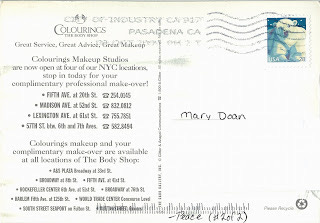 COLOURINGS
THE BODY SHOP
Great Service, Great Advice, Great Makeup
CITY OF INDUSTRY CA 917
PASADENA CA
USA 20
Colourings Makeup Studios
are now open at four of our NYC locations,
stop in today for your
complimentary professional make-over!
• FIFTH AVE. at 20th St. ☎ 254.0145
• MADISON AVE. at 52nd St. ☎ 832.0812
• LEXINGTON AVE. at 61st St. ☎ 755.7851
• 57TH ST. btw. 6th and 7th Aves. ☎ 582.8494
Mary Doan
Colourings makeup and your
complimentary make-over are available
at all locations of The Body Shop:
• A&S PLAZA Broadway at 33rd St.
• BROADWAY at 4th St. • FIFTH AVE. at 41st St.
• ROCKEFELLER CENTER 6th Ave. at 51st St. • BROADWAY at 70th St.
• HARLEM Fifth Ave. at 125th St. • WORLD TRADE CENTER Concourse Level
• SOUTH STREET SEAPORT on Fulton St.
-Peace (2 of 2)